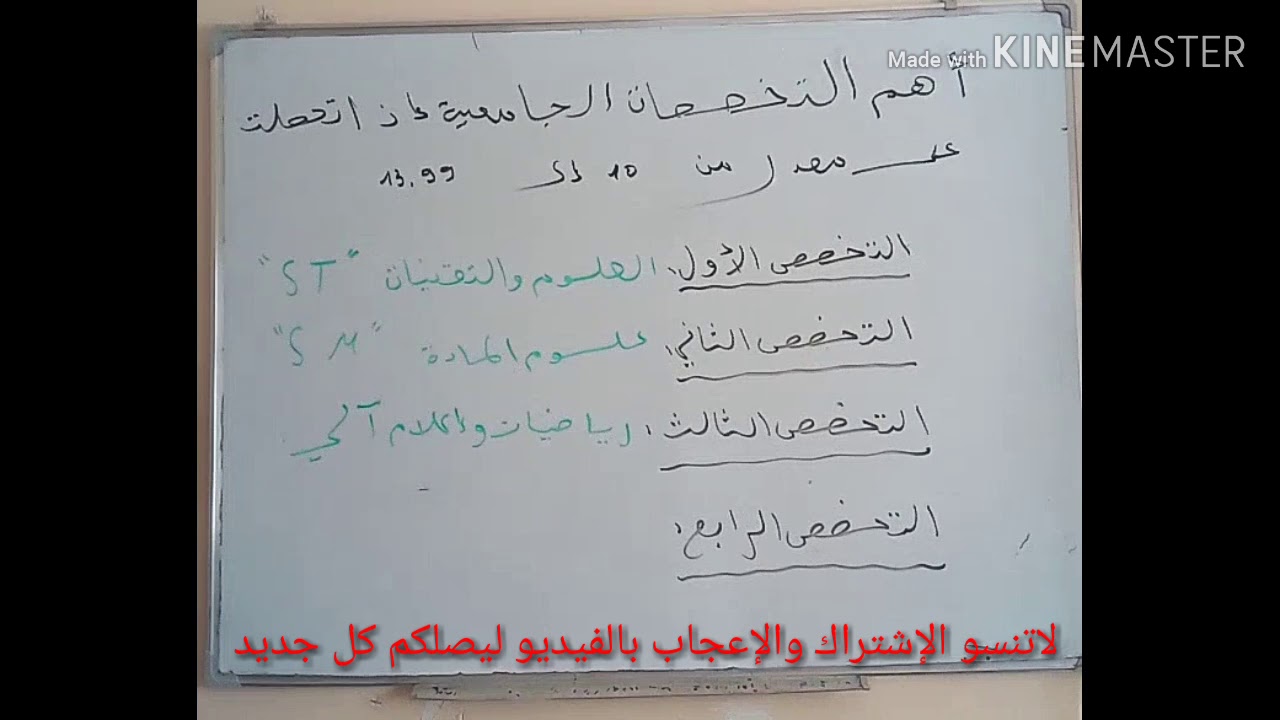 Made with KINEMASTER
أهم التخصصات الجامعية إذ اتحصلت
على معدل من 10 إلى 13.99
التخصص الأول: العلوم والتقنيات "ST"
التخصص الثاني: علوم المادة "SM"
التخصص الثالث: رياضيات وإعلام آلي
التخصص الرابع:
لاتنسو الإشتراك والإعجاب بالفيديو ليصلكم كل جديد